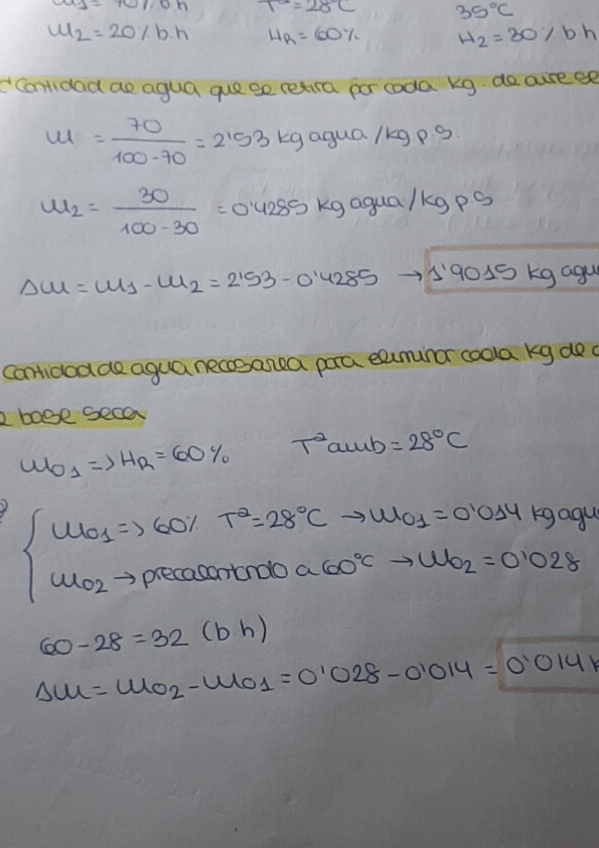 70% b.h Tª = 28°C 35°C
W2 = 20% b.h HR = 60% H2 = 30% b h
Cantidad de agua que se retira por cada kg. de aire se
W = 70 / 100-70 = 2'53 kg agua / kg p.s.
W2 = 30 / 100-30 = 0'4285 kg agua / kg p s
ΔW = W1 - W2 = 2'53 - 0'4285 → 1'9015 kg agu
Cantidad de agua necesarea para eliminar cada kg de
base seca
Wo1 => HR = 60% Tª amb = 28°C
Wo1 => 60% Tª = 28°C → Wo1 = 0'014 kg agu
Wo2 → precalentando a 60°C → Wo2 = 0'028
60 - 28 = 32 (b.h)
ΔW = Wo2 - Wo1 = 0'028 - 0'014 = 0'014 k